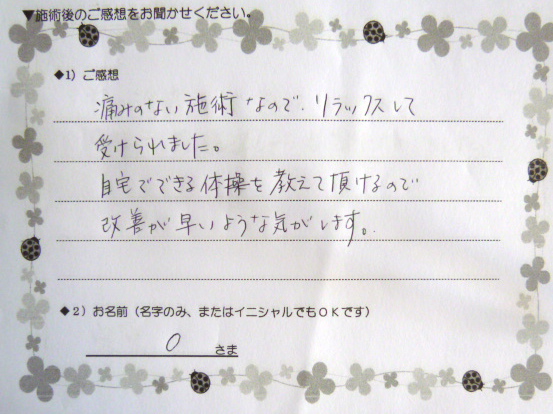 ▼施術後のご感想をお聞かせください。
◆1）ご感想
痛みのない施術なので、リラックスして
受けられました。
自宅でできる体操を教えて頂けるので
改善が早いような気がします。
◆2）お名前（名字のみ、またはイニシャルでもＯＫです）
O さま